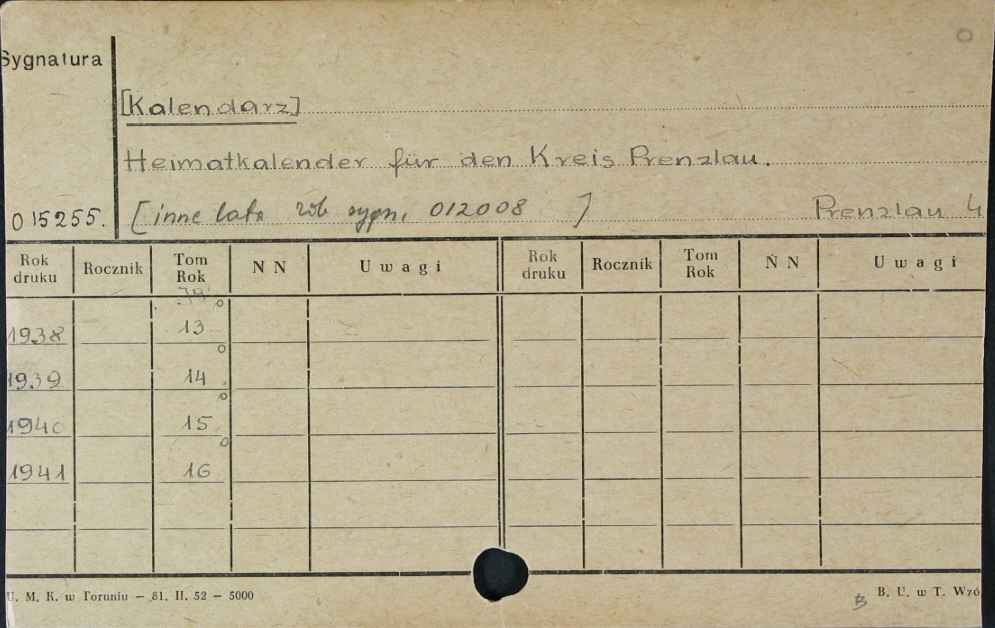 Sygnatura
[Kalendarz]
Heimatkalender für den Kreis Prenzlau.
015255. [inne lata zob sygn. 012008 ] Prenzlau 4
Rok druku Rocznik Tom Rok N N Uwagi Rok druku Rocznik Tom Rok N N Uwagi
1938 13
1939 14
1940 15
1941 16
U. M. K. w Toruniu — 81. II. 52 — 5000 B. U. w T. Wzó
B